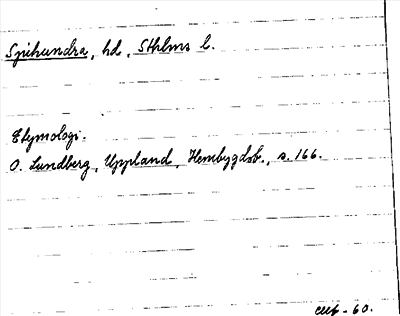 Sjuhundra, hd, Sthlms l.
Etymologi.
O. Lundberg, Uppland, Hembygdsb., s. 166.
-60.